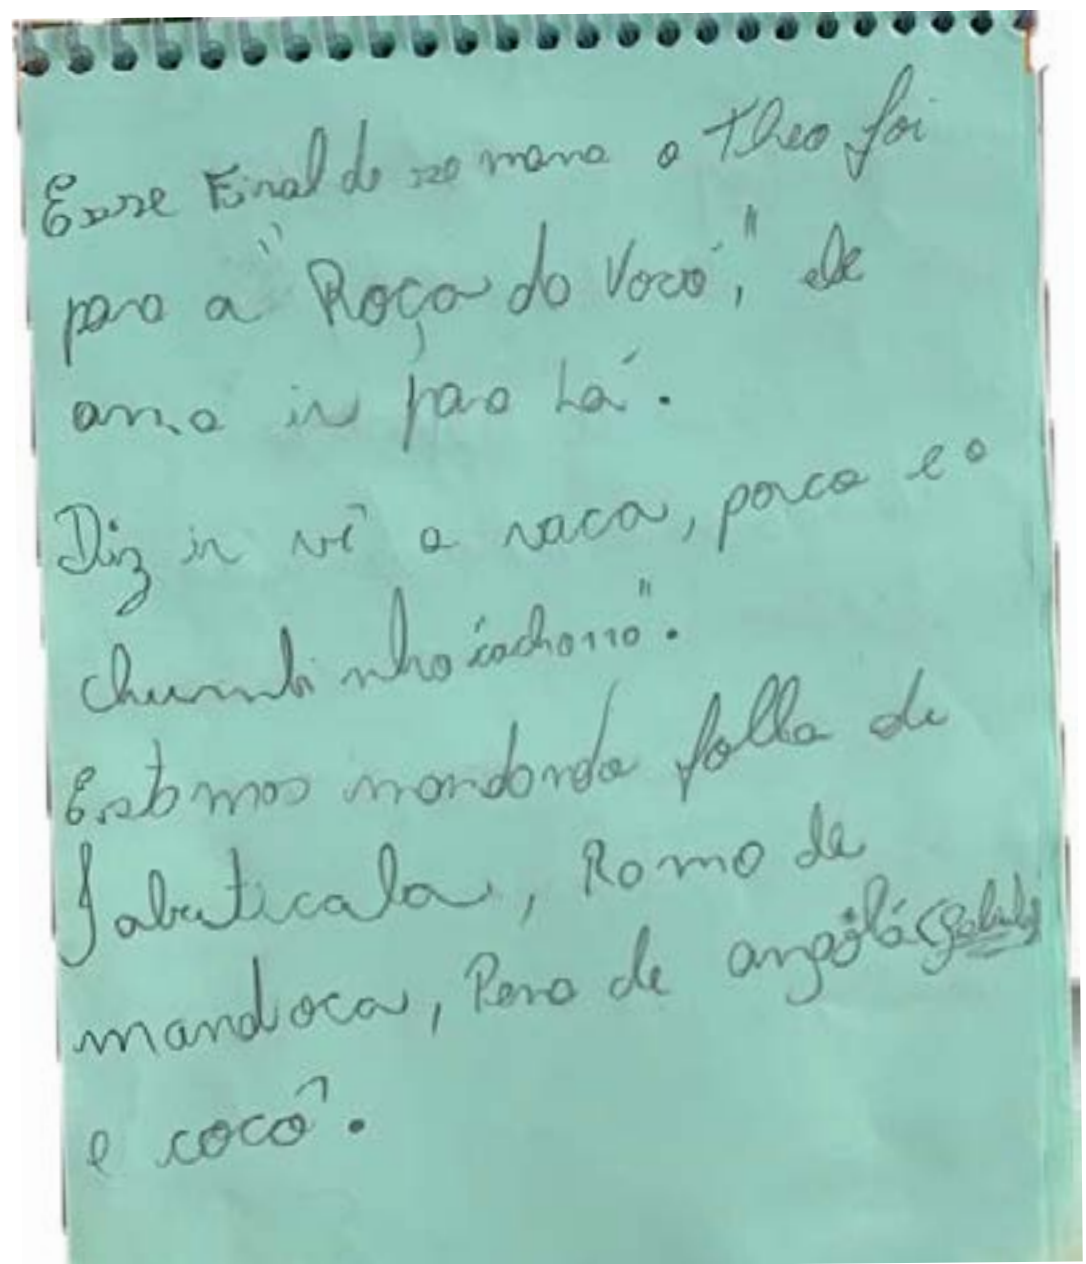 Esse Final de semana o Theo foi
para a "Roça do Vovó", ele
ama ir para Lá.
Diz ir vê a vaca, porco e o
chumbinho "cachorro".
Estamos mandando folha de
Jabuticaba, Ramo de
mandioca, Pena de angolá (Galinha)
e cocô.